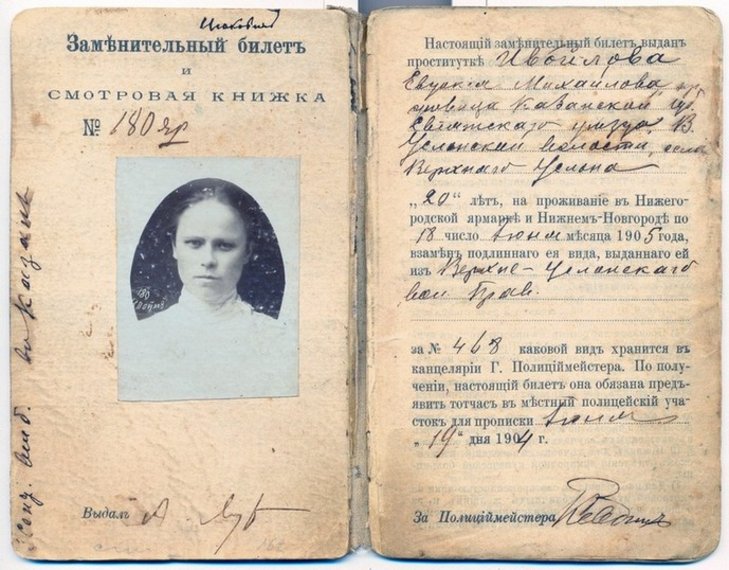 Замѣнительный билетъ
и
СМОТРОВАЯ КНИЖКА
№ 180 яр
180
Выдалъ А.
Настоящій замѣнительный билетъ выданъ
проституткѣ Ивойлова
Евдокія Михайлова, кр
Казанской губ.
уѣзда, В.
Услонской волости, села
Верхняго Услона
„20“ лѣтъ, на проживаніе въ Нижего-
родской ярмаркѣ и Нижнемъ-Новгородѣ по
18 число Іюня мѣсяца 1905 года,
взамѣнъ подлиннаго ея вида, выданнаго ей
изъ Верхне-Услонскаго
вол Прав.
за № 468 каковой видъ хранится въ
канцеляріи Г. Полиціймейстера. По полу-
ченіи, настоящій билетъ она обязана предъ-
явить тотчасъ въ мѣстный полицейскій уча-
стокъ для прописки Іюня
„19“ дня 1904 г.
За Полиціймейстера